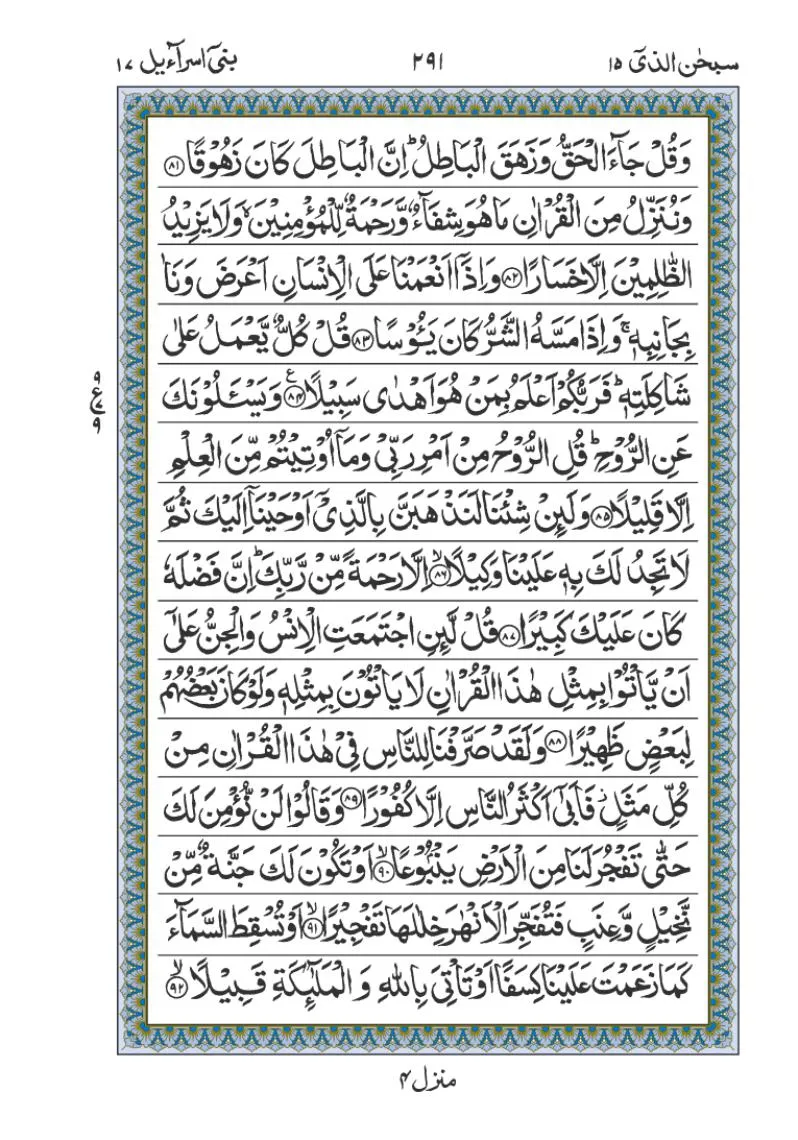 سبحٰن الذیٓ ۱۵
۲۹۱
بنیٓ اسرآءیل ۱۷
وَقُلْ جَآءَ الْحَقُّ وَزَهَقَ الْبَاطِلُ ؕ اِنَّ الْبَاطِلَ كَانَ زَهُوْقًا ﴿۸۱﴾
وَنُنَزِّلُ مِنَ الْقُرْاٰنِ مَا هُوَ شِفَآءٌ وَّرَحْمَةٌ لِّلْمُؤْمِنِيْنَ ۙ وَلَا يَزِيْدُ
الظّٰلِمِيْنَ اِلَّا خَسَارًا ﴿۸۲﴾ وَاِذَاۤ اَنْعَمْنَا عَلَى الْاِنْسَانِ اَعْرَضَ وَنَاٰ
بِجَانِبِهٖ ۚ وَاِذَا مَسَّهُ الشَّرُّ كَانَ يَـُٔوْسًا ﴿۸۳﴾ قُلْ كُلٌّ يَّعْمَلُ عَلٰى
شَاكِلَتِهٖ ؕ فَرَبُّكُمْ اَعْلَمُ بِمَنْ هُوَ اَهْدٰى سَبِيْلًا ﴿۸۴﴾ ع وَيَسْـَٔلُوْنَكَ
عَنِ الرُّوْحِ ؕ قُلِ الرُّوْحُ مِنْ اَمْرِ رَبِّيْ وَمَاۤ اُوْتِيْتُمْ مِّنَ الْعِلْمِ
اِلَّا قَلِيْلًا ﴿۸۵﴾ وَلَئِنْ شِئْنَا لَنَذْهَبَنَّ بِالَّذِيْۤ اَوْحَيْنَاۤ اِلَيْكَ ثُمَّ
لَا تَجِدُ لَكَ بِهٖ عَلَيْنَا وَكِيْلًا ﴿۸۶﴾ ۙ اِلَّا رَحْمَةً مِّنْ رَّبِّكَ ؕ اِنَّ فَضْلَهٗ
كَانَ عَلَيْكَ كَبِيْرًا ﴿۸۷﴾ قُلْ لَّئِنِ اجْتَمَعَتِ الْاِنْسُ وَالْجِنُّ عَلٰۤى
اَنْ يَّاْتُوْا بِمِثْلِ هٰذَا الْقُرْاٰنِ لَا يَاْتُوْنَ بِمِثْلِهٖ وَلَوْ كَانَ بَعْضُهُمْ
لِبَعْضٍ ظَهِيْرًا ﴿۸۸﴾ وَلَقَدْ صَرَّفْنَا لِلنَّاسِ فِيْ هٰذَا الْقُرْاٰنِ مِنْ
كُلِّ مَثَلٍ ؗ فَاَبٰۤى اَكْثَرُ النَّاسِ اِلَّا كُفُوْرًا ﴿۸۹﴾ وَقَالُوْا لَنْ نُّؤْمِنَ لَكَ
حَتّٰى تَفْجُرَ لَنَا مِنَ الْاَرْضِ يَنْۢبُوْعًا ﴿۹۰﴾ ۙ اَوْ تَكُوْنَ لَكَ جَنَّةٌ مِّنْ
نَّخِيْلٍ وَّعِنَبٍ فَتُفَجِّرَ الْاَنْهٰرَ خِلٰلَهَا تَفْجِيْرًا ﴿۹۱﴾ ۙ اَوْ تُسْقِطَ السَّمَآءَ
كَمَا زَعَمْتَ عَلَيْنَا كِسَفًا اَوْ تَاْتِيَ بِاللّٰهِ وَ الْمَلٰٓئِكَةِ قَبِيْلًا ﴿۹۲﴾ ۙ
۹
ع
۹
منزل ۴